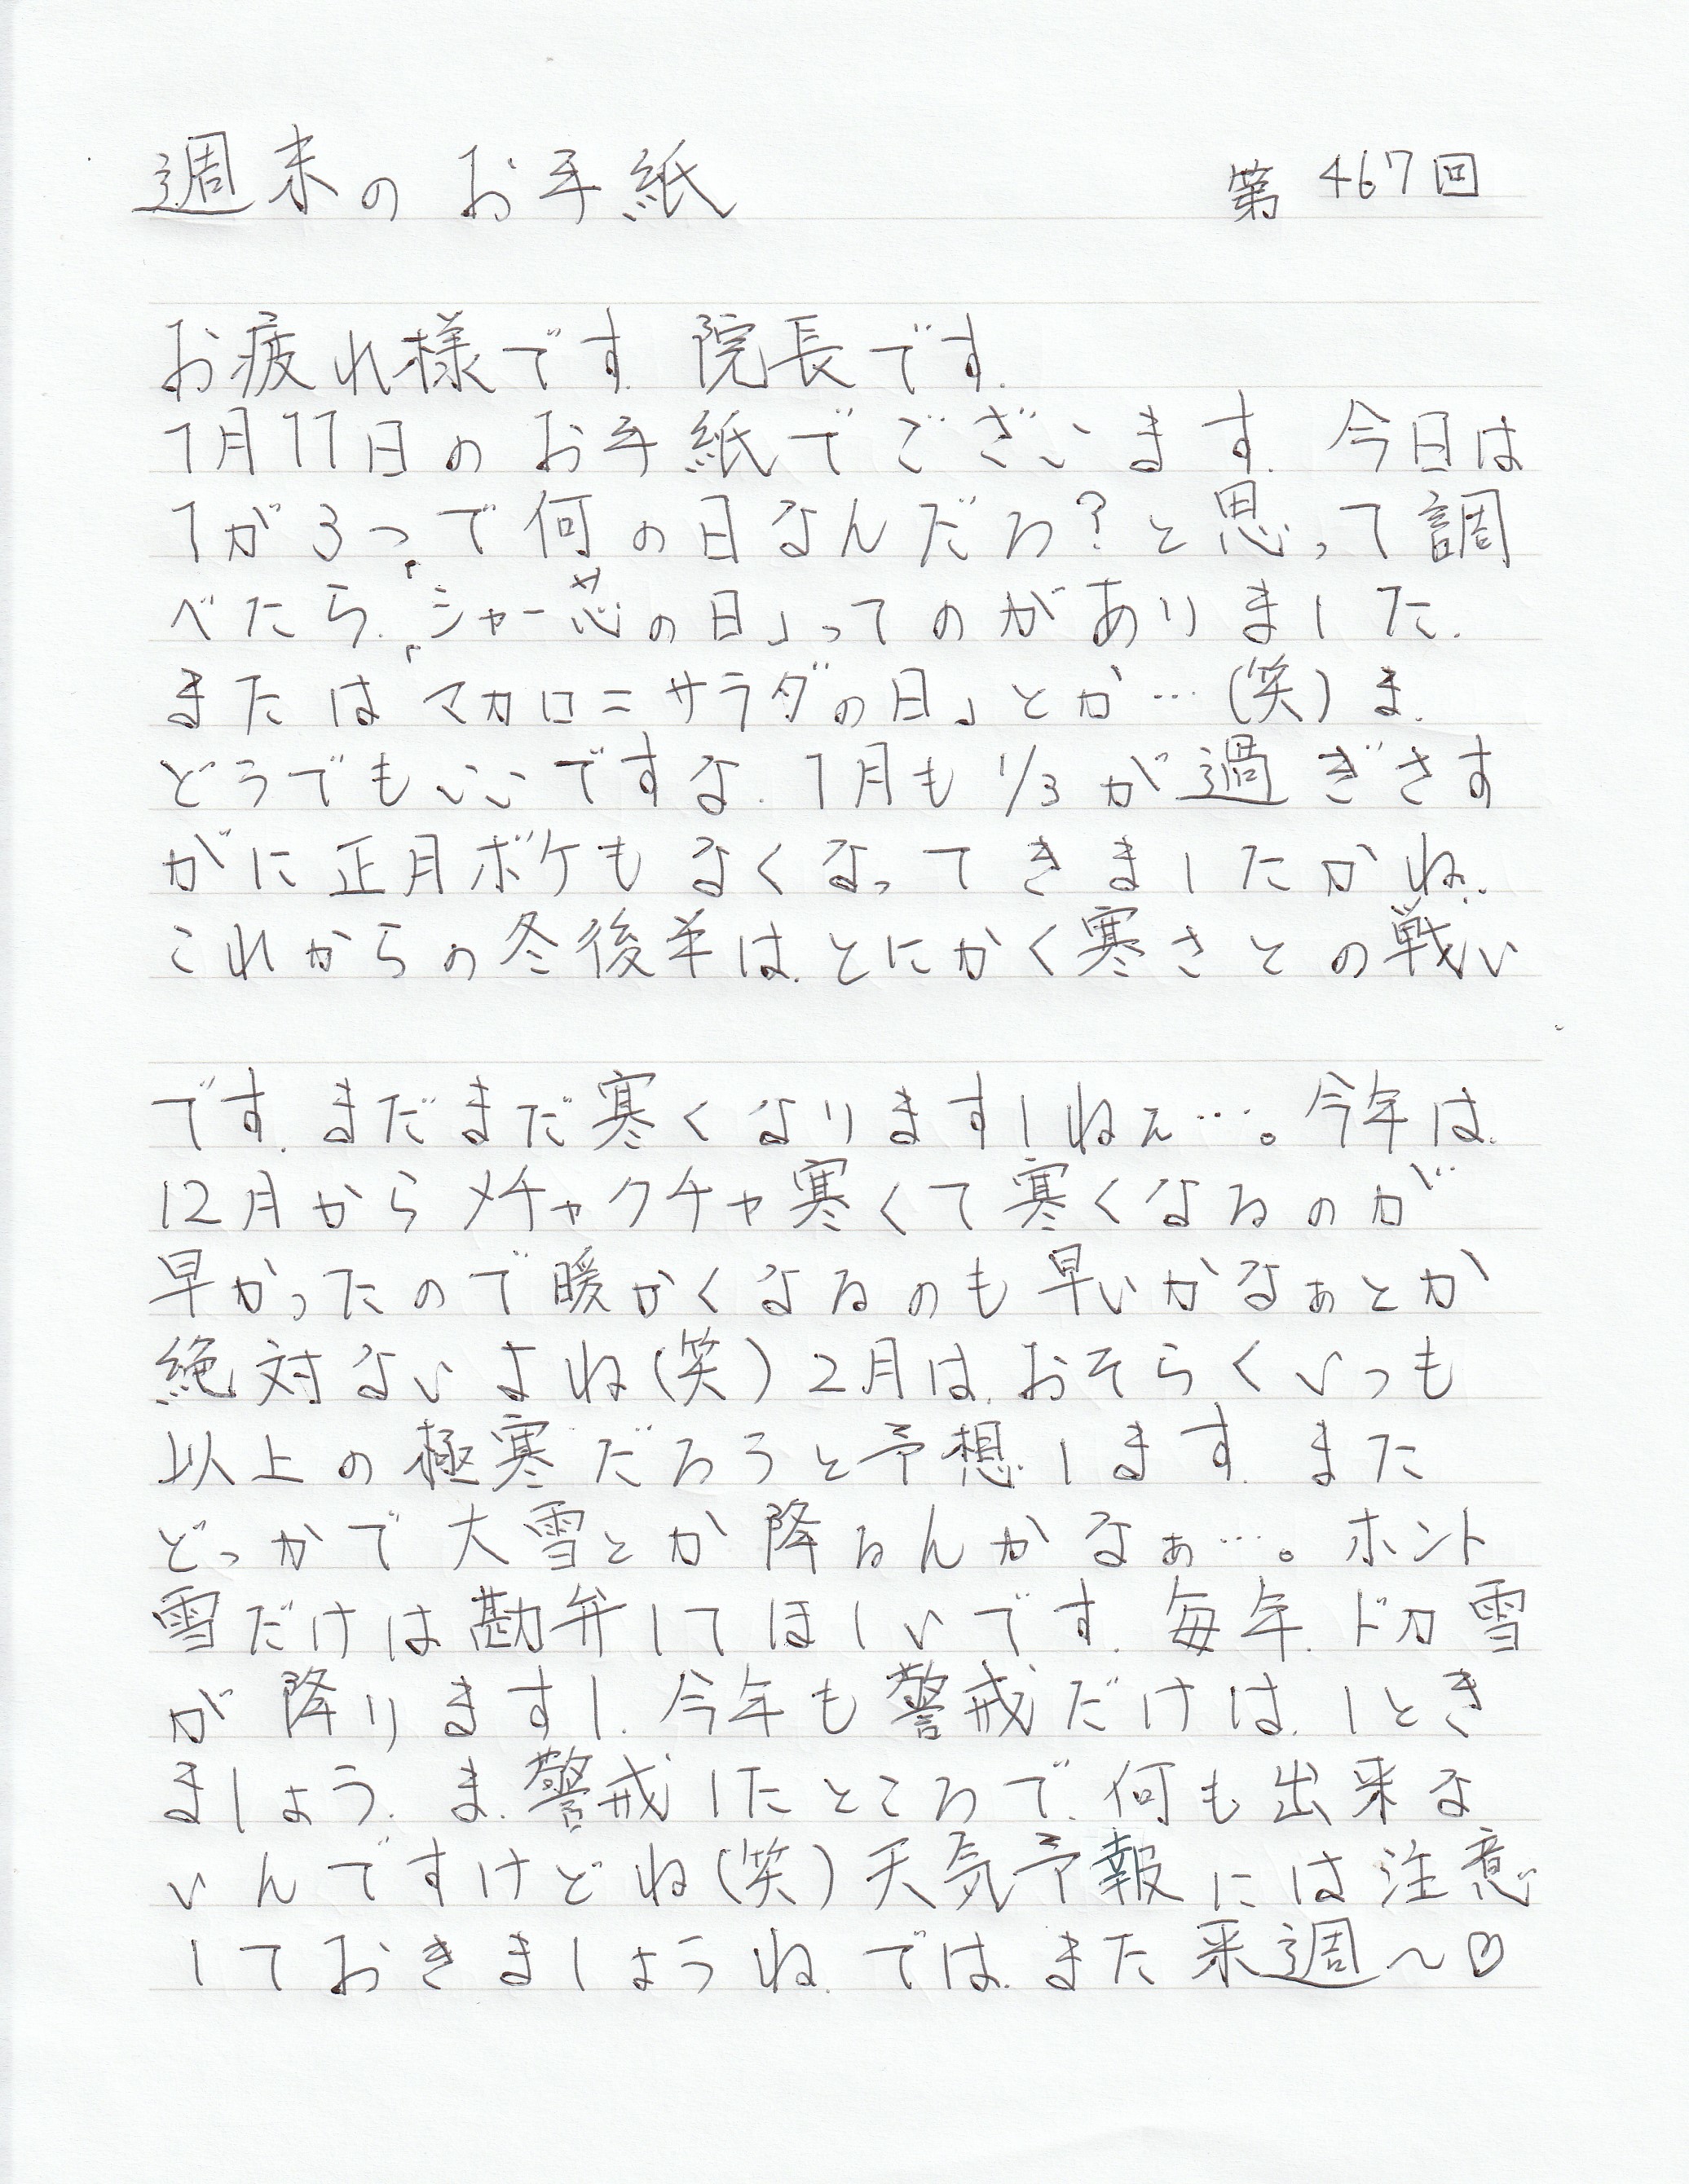 週末のお手紙 第467回
お疲れ様です.院長です.
1月11日のお手紙でございます.今日は
1が3つで何の日なんだろ?と思って調
べたら.「シャー芯の日」ってのがありました.
または「マカロニサラダの日」とか…(笑)ま.
どうでもいいですな.1月も1/3が過ぎさす
がに正月ボケもなくなってきましたかね.
これからの冬後半は.とにかく寒さとの戦い
です.まだまだ寒くなりますしねぇ…。今年は.
12月からメチャクチャ寒くて寒くなるのが
早かったので暖かくなるのも早いかなぁとか
絶対ないよね(笑)2月は.おそらくいつも
以上の極寒だろうと予想します.また
どっかで大雪とか降るんかなぁ…。ホント
雪だけは勘弁してほしいです.毎年.ドカ雪
が降りますし.今年も警戒だけは.しとき
ましょう.ま.警戒したところで.何も出来な
いんですけどね(笑)天気予報には注意
しておきましょうね.では.また来週〜♡